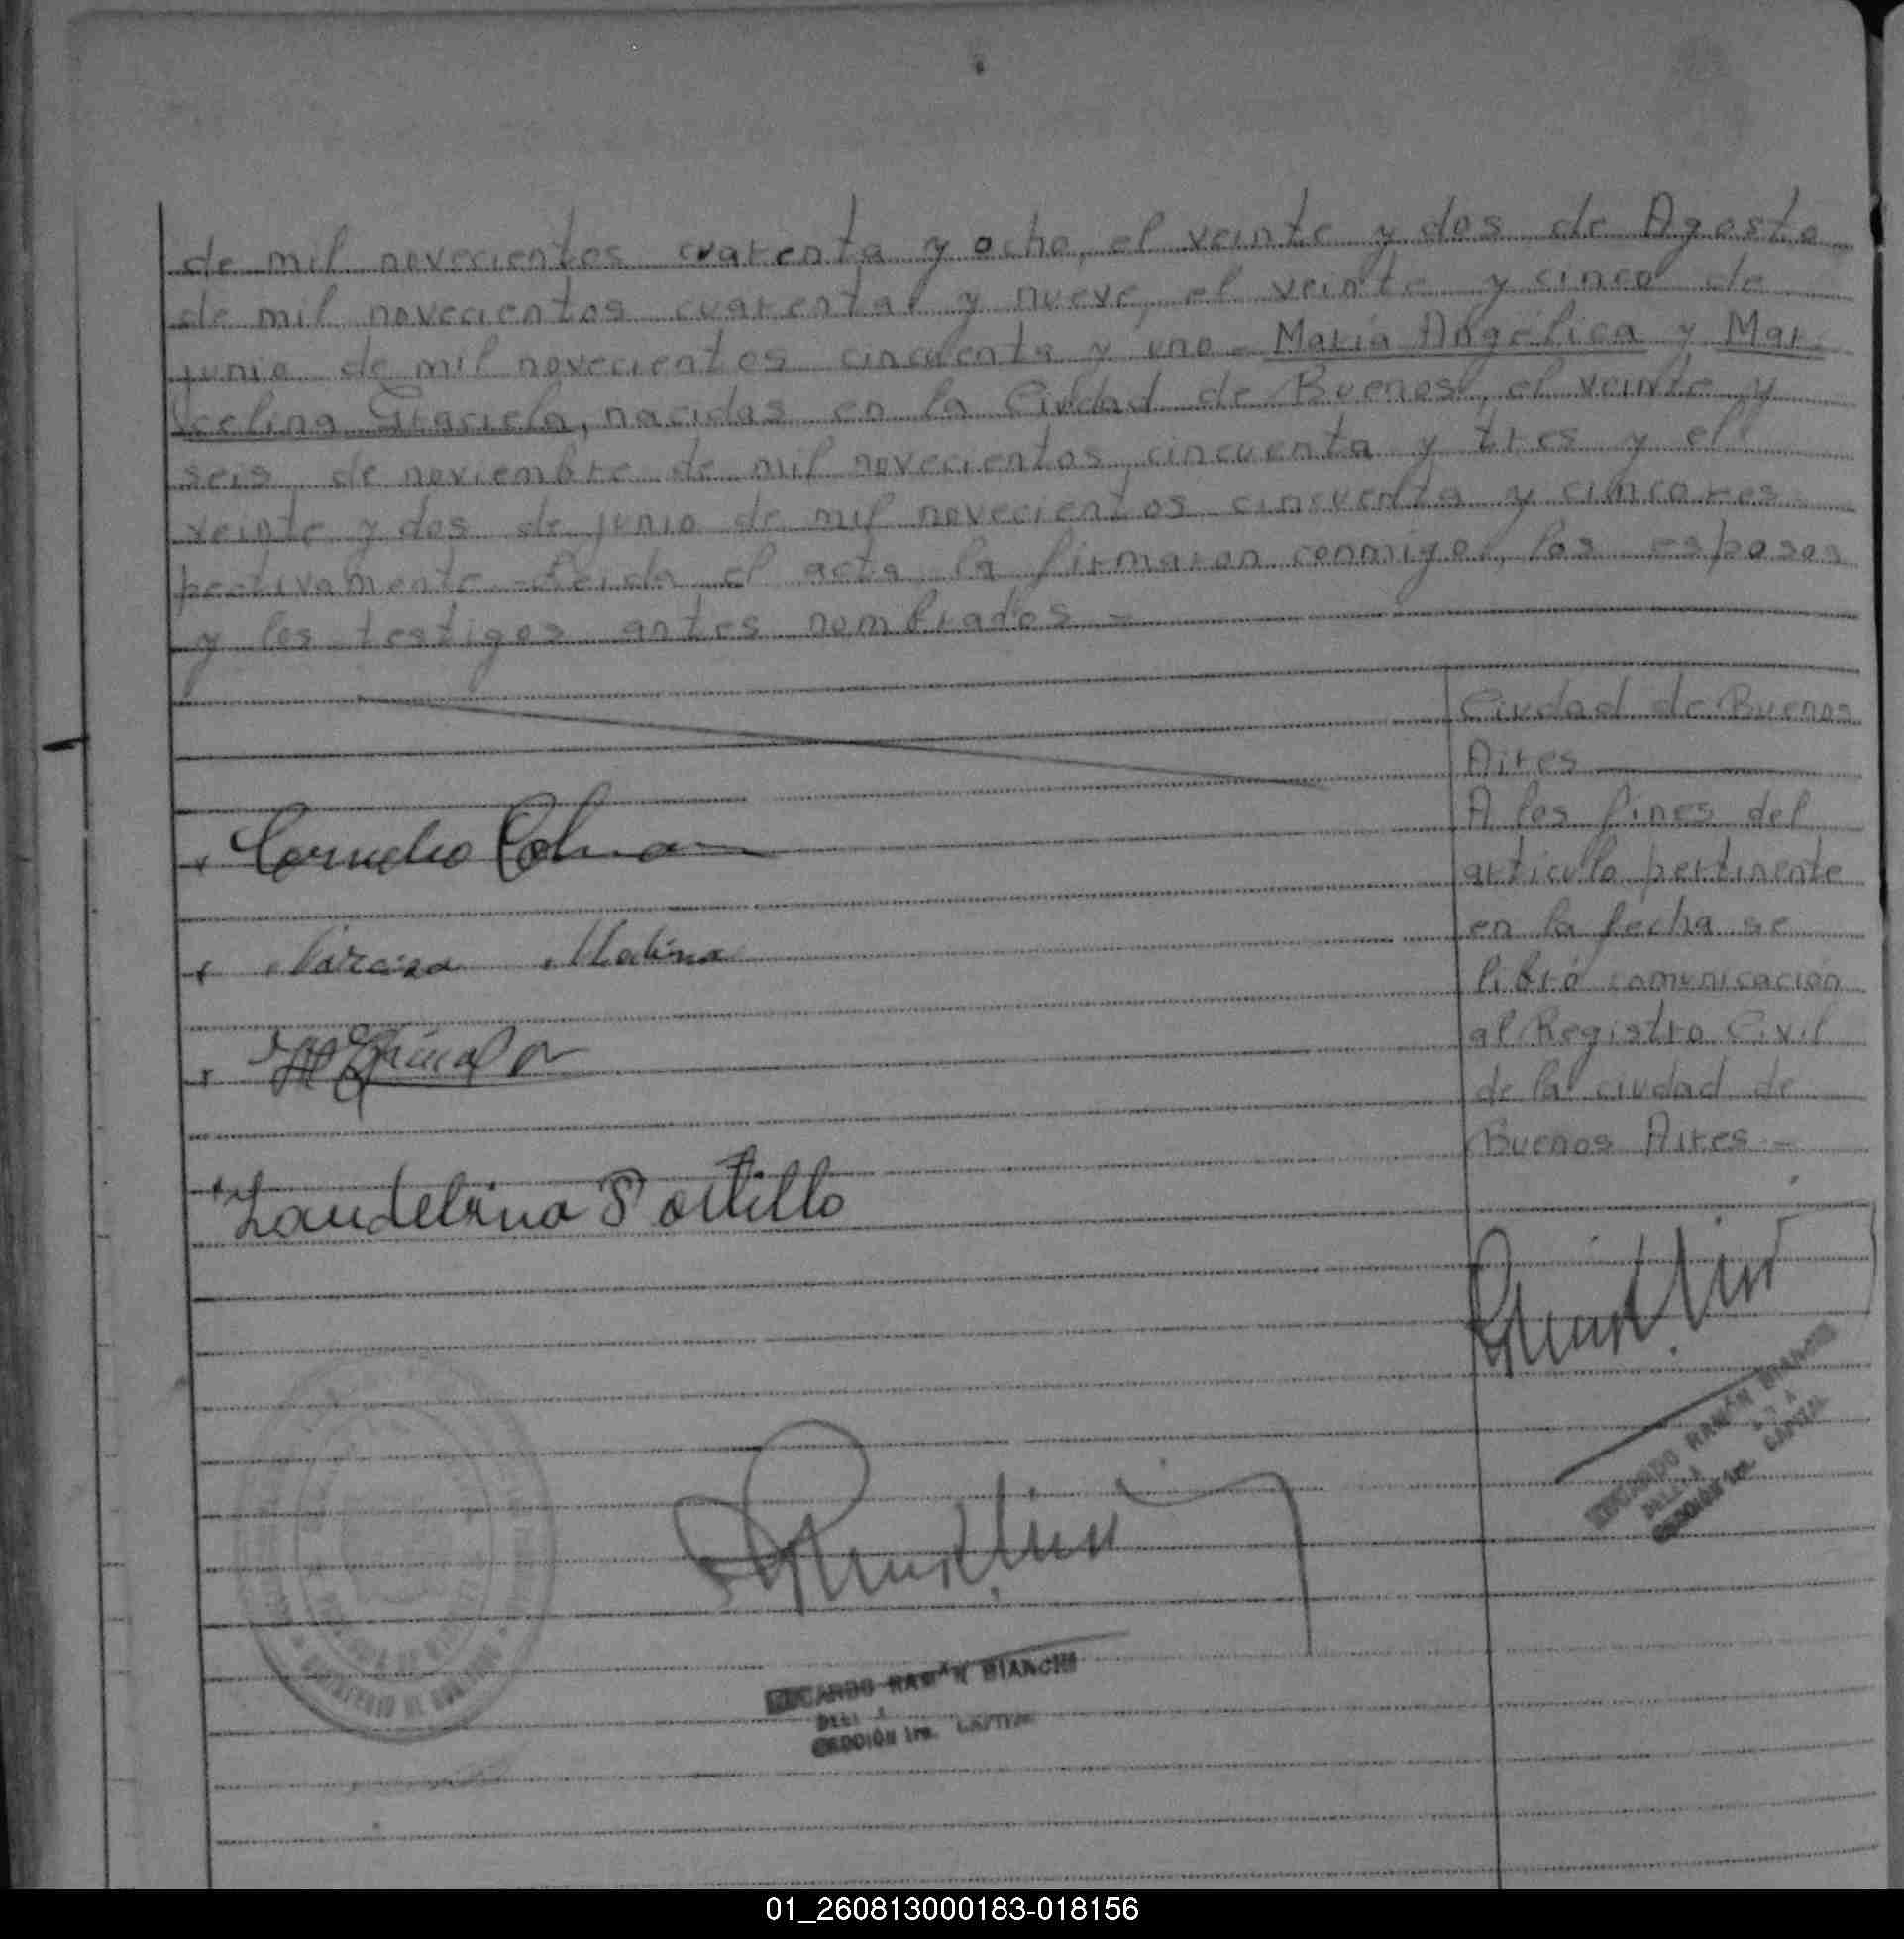 de mil novecientos cuarenta y ocho, el veinte y dos de Agosto
de mil novecientos cuarenta y nueve, el veinte y cinco de
junio de mil novecientos cincuenta y uno - María Angélica y Mar-
celina Graciela, nacidas en la Ciudad de Buenos, el veinte y
seis de noviembre de mil novecientos cincuenta y tres y el
veinte y dos de junio de mil novecientos cincuenta y cinco res-
pectivamente - Leida el acta la firmaron conmigo, los esposos
y los testigos antes nombrados =
Ciudad de Buenos
Aires
A los fines del
artículo pertinente
en la fecha se
libró comunicación
al Registro Civil
de la ciudad de
Buenos Aires =
Cornelio
Narcisa Medina
Laudelina Portillo
RICARDO RAMÓN BIANCHI
SECCIÓN 1ra. CAPITAL
RICARDO RAMÓN BIANCHI
SECCIÓN 1ra. CAPITAL
MINISTERIO DE GOBIERNO
01_260813000183-018156